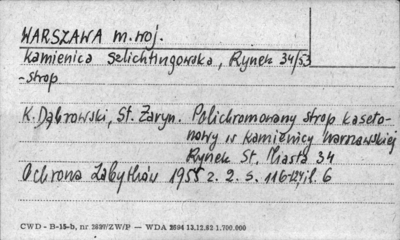 WARSZAWA m. woj.
Kamienica Szlichtingowska, Rynek 34/53
-strop
K. Dąbrowski, St. Żaryn. Polichromowany strop kaseto-
nowy w kamienicy warszawskiej
Rynek St. Miasta 34
Ochrona Zabytków 1955 z. 2. s. 116-124, il. 6
CWD - B-15-b, nr 2637/ZW/P — WDA 2604 13.12.82 1.700.000